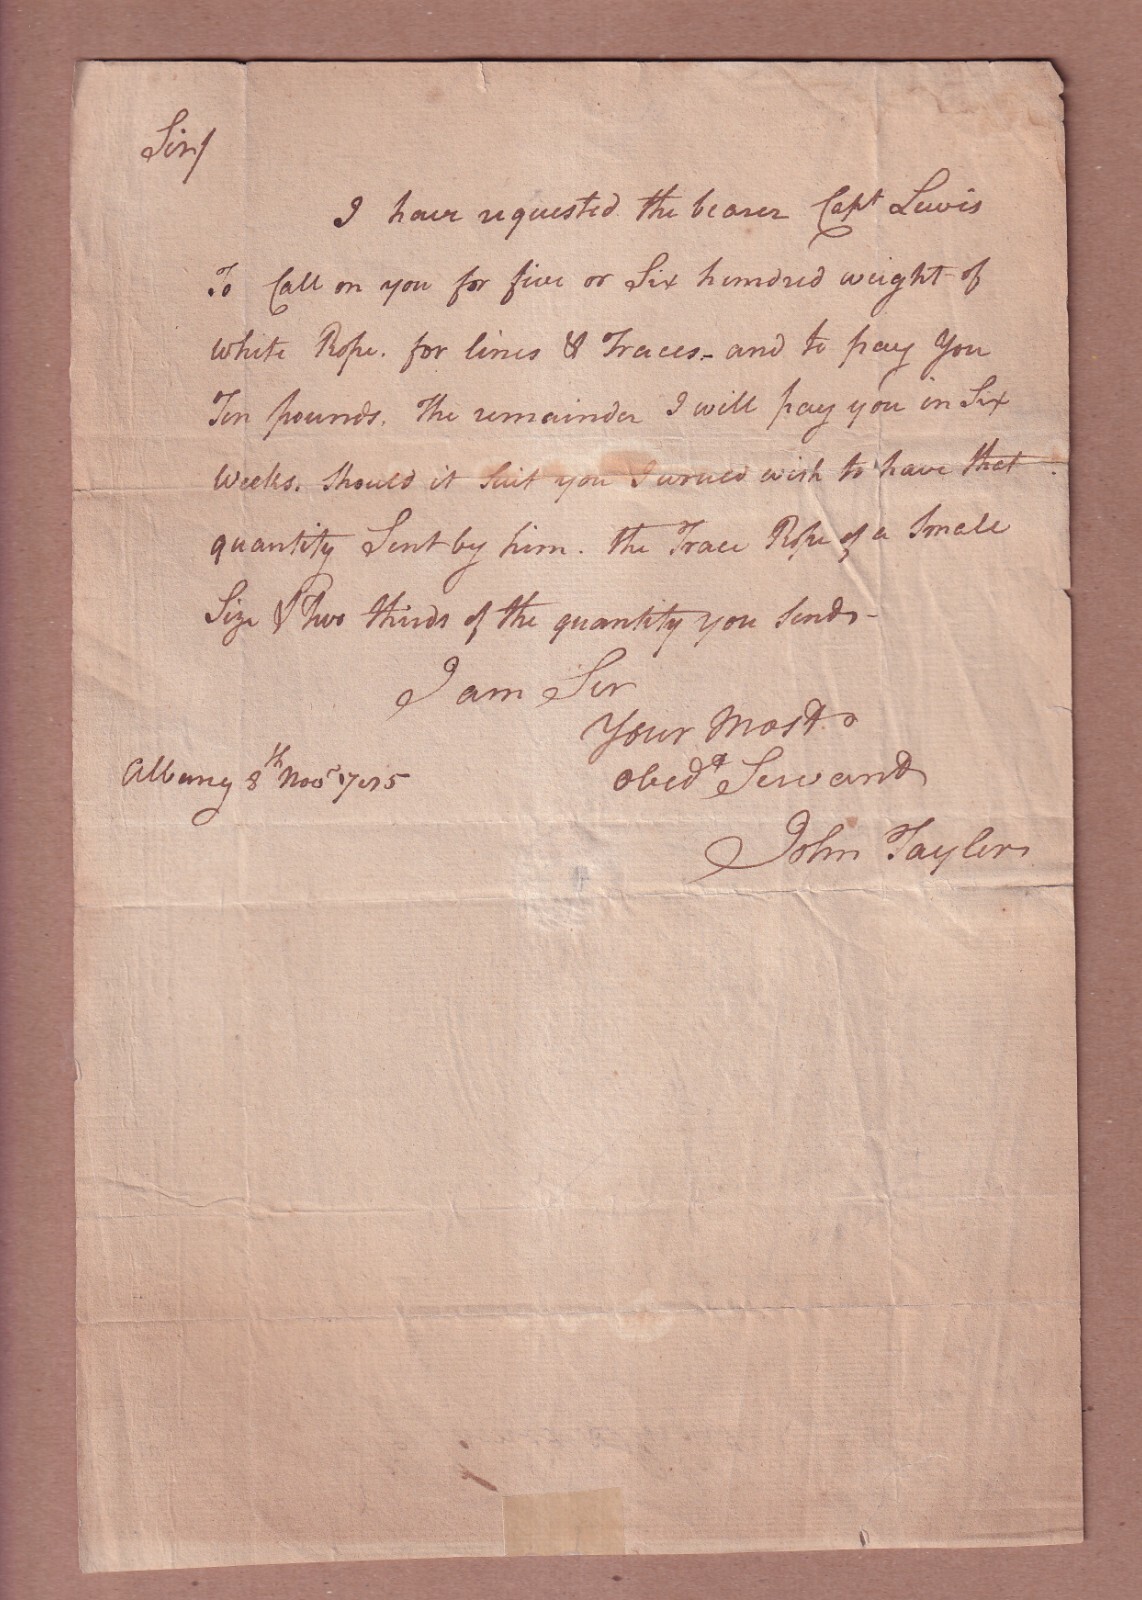 Sir/
I have requested the bearer Capt Lewis
To Call on you for five or Six hundred weight of
white Rope. for lines & Traces - and to pay You
Ten pounds. The remainder I will pay you in Six
Weeks. Should it Suit you I would wish to have that
quantity Sent by him. the Trace Rope of a Small
Size & Two thirds of the quantity you Send -
I am Sir
Your Most
Obedt Servant
Albany 8th Novr
John Tayler